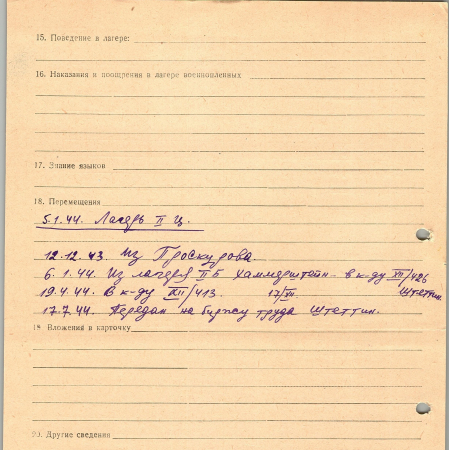 15. Поведение в лагере:
16. Наказания и поощрения в лагере военнопленных
17. Знание языков
18. Перемещения
5.1.44. Лагерь II Ц.
12.12.43. Из Проскурова.
6.1.44. Из лагеря II Б Хаммерштейн - в к-ду XII/426
Штеттин.
19.4.44. В к-ду XII/413. 17/VII.
17.7.44. Передан на биржу труда Штеттин.
19. Вложения в карточку
20. Другие сведения